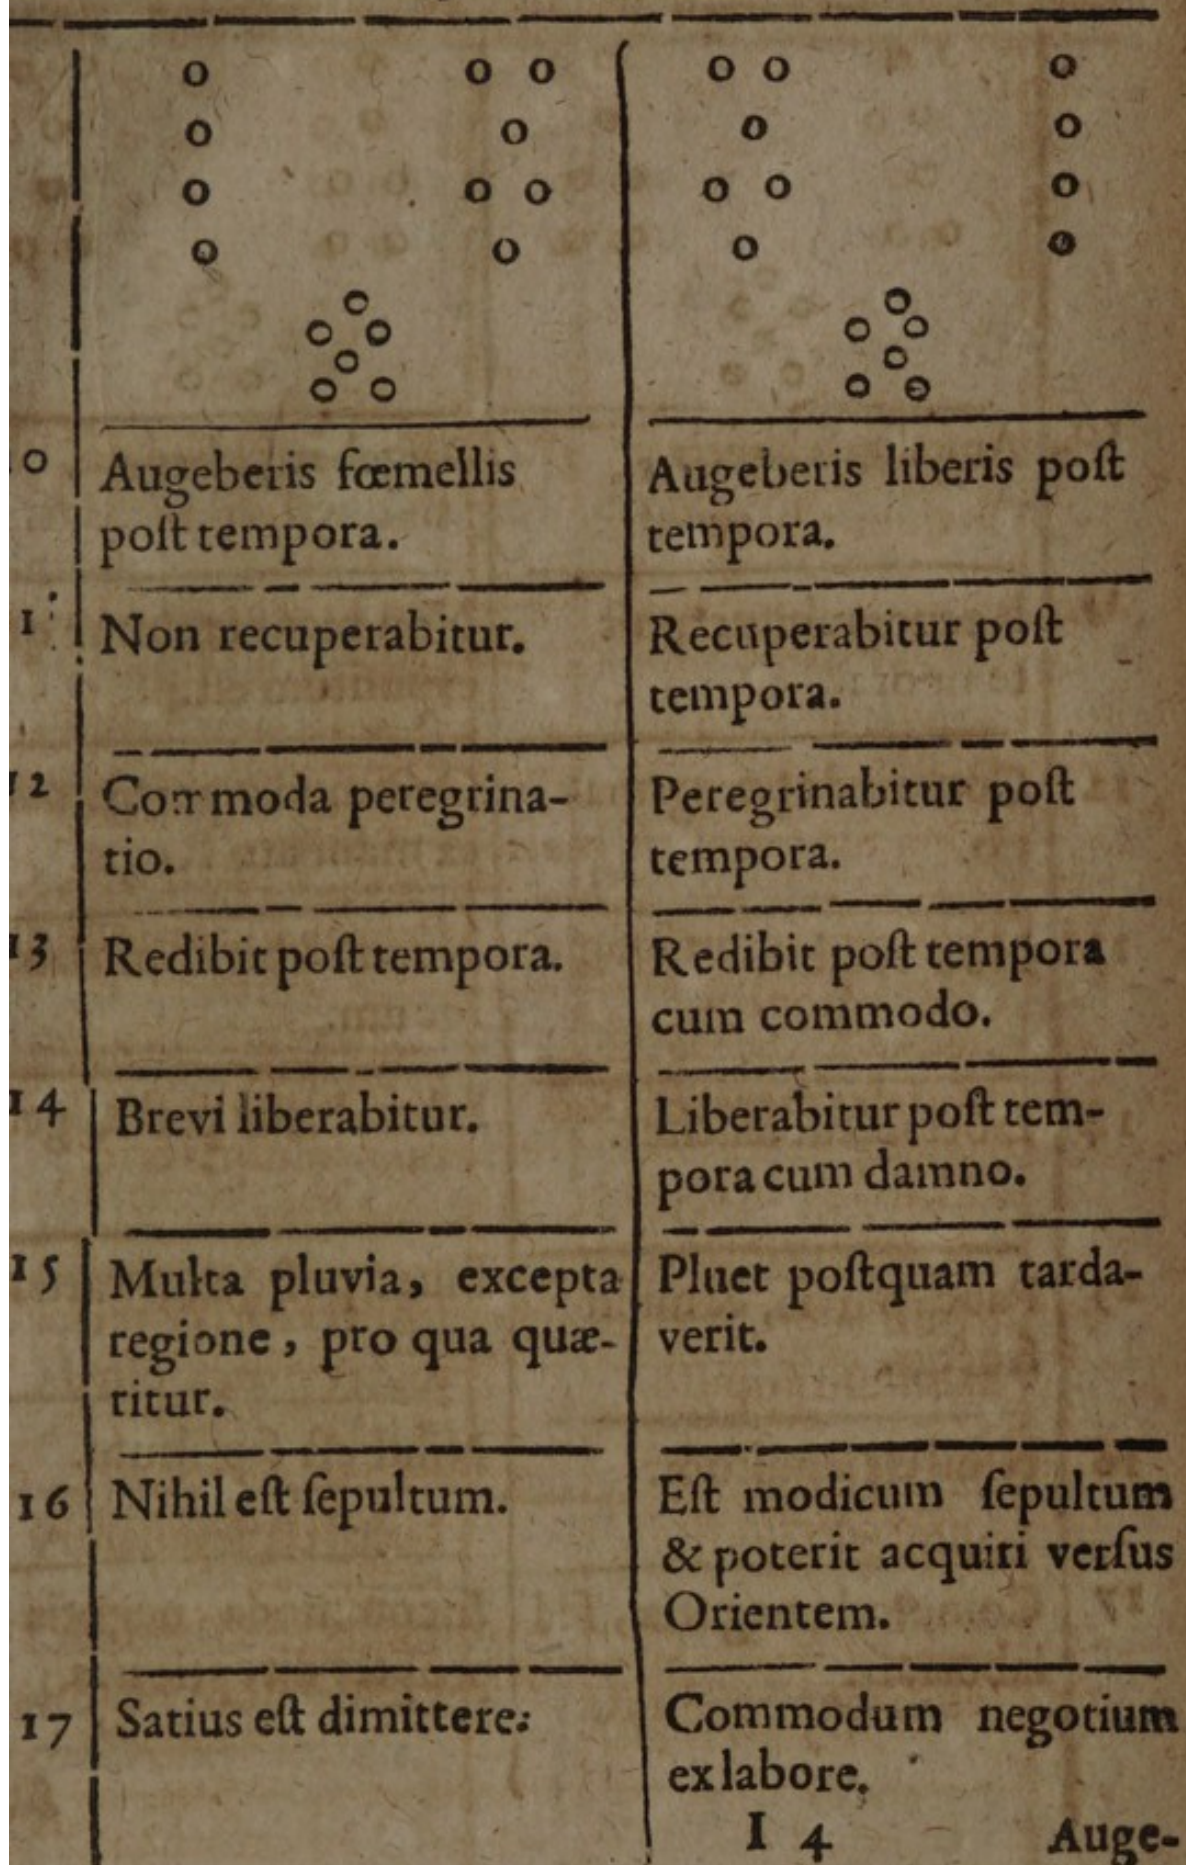 0 Augeberis fœmellis
poſt tempora.
Augeberis liberis poſt
tempora.
1 Non recuperabitur.
Recuperabitur poſt
tempora.
12 Commoda peregrina-
tio.
Peregrinabitur poſt
tempora.
13 Redibit poſt tempora.
Redibit poſt tempora
cum commodo.
14 Brevi liberabitur.
Liberabitur poſt tem-
pora cum damno.
15 Multa pluvia, excepta
regione, pro qua quæ-
ritur.
Pluet poſtquam tarda-
verit.
16 Nihil eſt ſepultum.
Eſt modicum ſepultum
& poterit acquiri verſus
Orientem.
17 Satius eſt dimittere:
Commodum negotium
ex labore.
I 4 Auge-